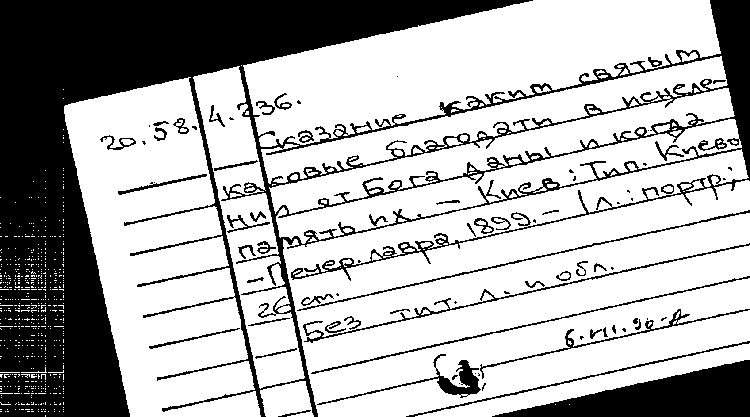 20.58.4.236.
Сказание каким святым
каковые благодати в исцеле-
нии от Бога даны и когда
память их. – Киев: Тип. Киево
-Печер. лавра, 1899. – 1 л.: портр.;
26 см.
Без тит. л. и обл.